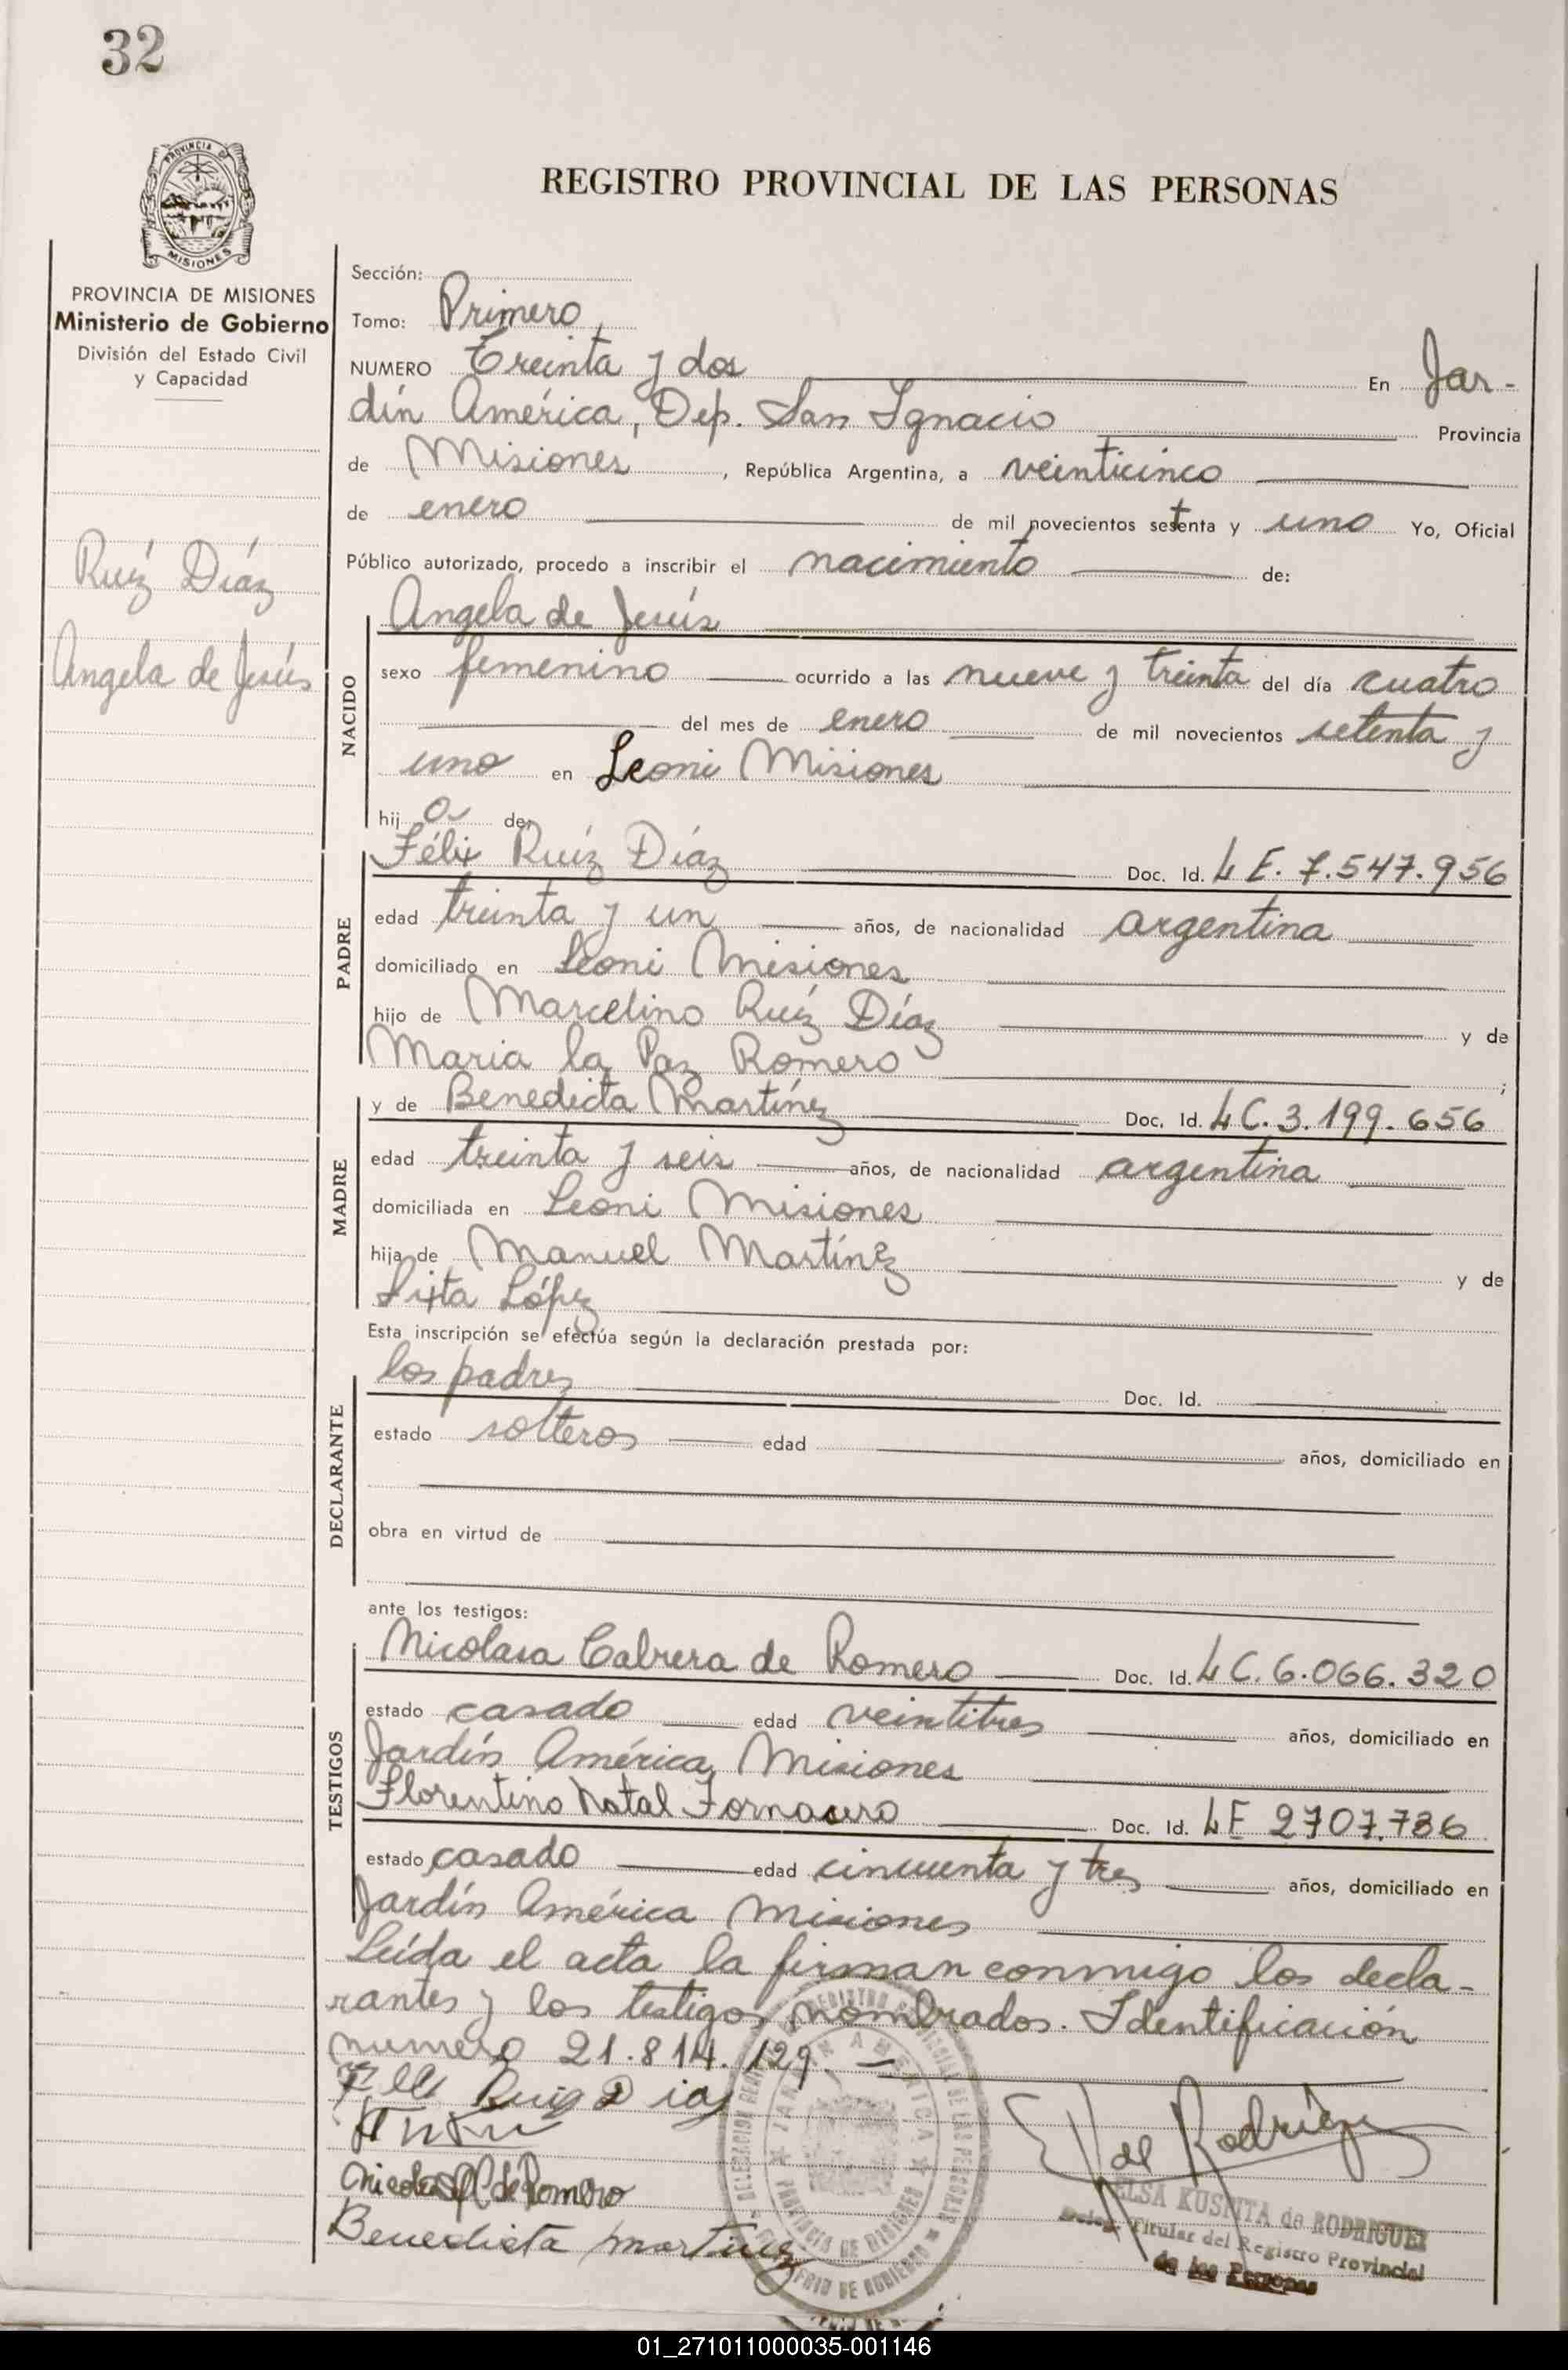 32
PROVINCIA D
MISIONES
REGISTRO PROVINCIAL DE LAS PERSONAS
PROVINCIA DE MISIONES
Ministerio de Gobierno
División del Estado Civil
y Capacidad
Ruíz Díaz
Angela de Jesús
Sección:
Tomo: Primero
NUMERO Treinta y dos En Jar-
dín América, Dep. San Ignacio Provincia
de Misiones, República Argentina, a veinticinco
de enero de mil novecientos setenta y uno Yo, Oficial
Público autorizado, procedo a inscribir el nacimiento de:
NACIDO
Angela de Jesús
sexo femenino ocurrido a las nueve y treinta del día cuatro
del mes de enero de mil novecientos setenta y
uno en Leoni Misiones
hij a de:
PADRE
Félix Ruíz Díaz Doc. Id. L E. 7.547.956
edad treinta y un años, de nacionalidad argentina
domiciliado en Leoni Misiones
hijo de Marcelino Ruíz Díaz y de
Maria la Paz Romero ;
MADRE
y de Benedicta Martínez Doc. Id. L C. 3.199.656
edad treinta y seis años, de nacionalidad argentina
domiciliada en Leoni Misiones
hija de Manuel Martínez y de
Sixta López
Esta inscripción se efectúa según la declaración prestada por:
DECLARANTE
los padres Doc. Id.
estado solteros edad años, domiciliado en
obra en virtud de
ante los testigos:
TESTIGOS
Nicolasa Cabrera de Romero Doc. Id. L C. 6.066.320
estado casado edad veintitres años, domiciliado en
Jardín América Misiones
Florentino Natal Fornasero Doc. Id. L E 2707.736
estado casado edad cincuenta y tres años, domiciliado en
Jardín América Misiones
Leída el acta la firman conmigo los decla-
rantes y los testigos nombrados. Identificación
numero 21.814.129.-
Ruiz Diaz
de Romero
Benedicta Martinez
de Rodríguez
ELSA KUSNITA de RODRIGUEZ
Deleg. Titular del Registro Provincial
de las Personas
PROVINCIA DE MISIONES
01_271011000035-001146